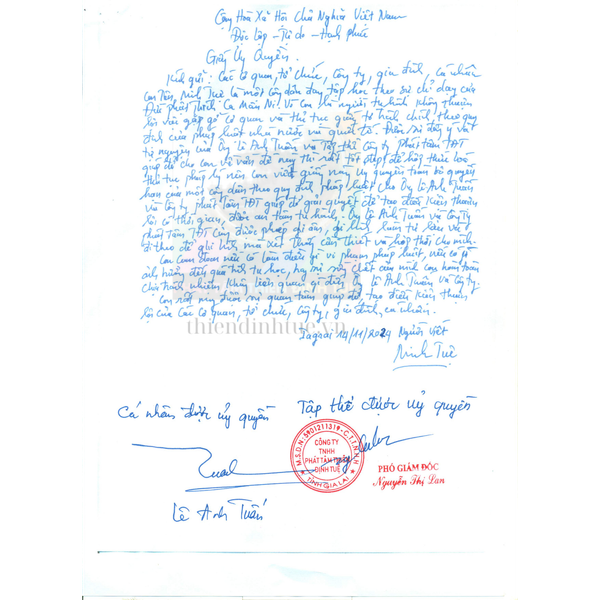 Cộng Hoà Xã Hội Chủ Nghĩa Việt Nam
Độc lập - Tự do - Hạnh phúc
Giấy Uỷ Quyền.
Kính gửi: Các cơ quan, tổ chức, công ty, gia đình, cá nhân
Con tên, Minh Tuệ là một công dân đang tập học theo sự chỉ dạy của
Đức phật Thích Ca Mâu Ni. Vì con là người tu hành không thuận
lợi với gặp gỡ cơ quan và thủ tục giấy tờ hành chính theo quy
định của pháp luật nhà nước và quốc tế.
tự nguyện của Ông Lê Anh Tuấn và Tập thể công ty phát tâm TĐT
giúp đỡ cho con về vấn đề này thì rất tốt đẹp để hợp thức hoá
thủ tục pháp lý nên con viết giấy này uỷ quyền toàn bộ quyền
hạn của một công dân theo quy định pháp luật cho Ông Lê Anh Tuấn
và Công ty phát tâm TĐT giúp đỡ giải quyết để tạo điều kiện thuận
lợi có thời gian, được an tâm tu hành. Ông Lê Anh Tuấn và Công ty
phát tâm TĐT cũng được phép
đi theo để ghi hình mà xét thấy cần thiết và hợp thời cho mình.
Con cam đoan nếu có làm điều gì vi phạm pháp luật, nếu có gì
ảnh hưởng đến quá trình tu học, hay
chịu trách nhiệm không liên quan gì đến Ông Lê Anh Tuấn và Công ty.
Con rất mong được sự quan tâm giúp đỡ, tạo điều kiện thuận
lợi của các cơ quan, tổ chức, công ty, gia đình, cá nhân.
thiendinhtue.vn
Iagrai 14/11/2024 Người viết
Minh Tuệ
Cá nhân được uỷ quyền
Tập thể được uỷ quyền
M.S.D.N: 5901211319 - C.T.T.N.H.H
CÔNG TY
TNHH
PHÁT TÂM
ĐỊNH TUỆ
TỈNH GIA LAI
PHÓ GIÁM ĐỐC
Nguyễn Thị Lan
Lê Anh Tuấn